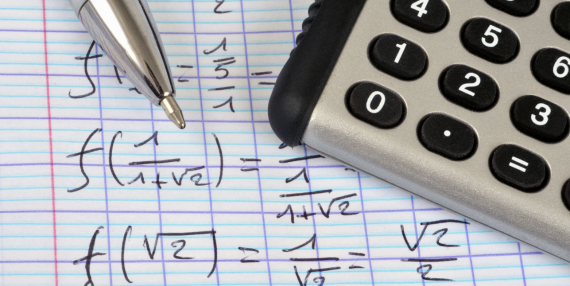 2
f(    = 1/5/1 =
f(1/1+√2) = 1/1/1+√2
f(√2) = 1/√2 = √2/2
4
5
6
1
2
3
0
.
=